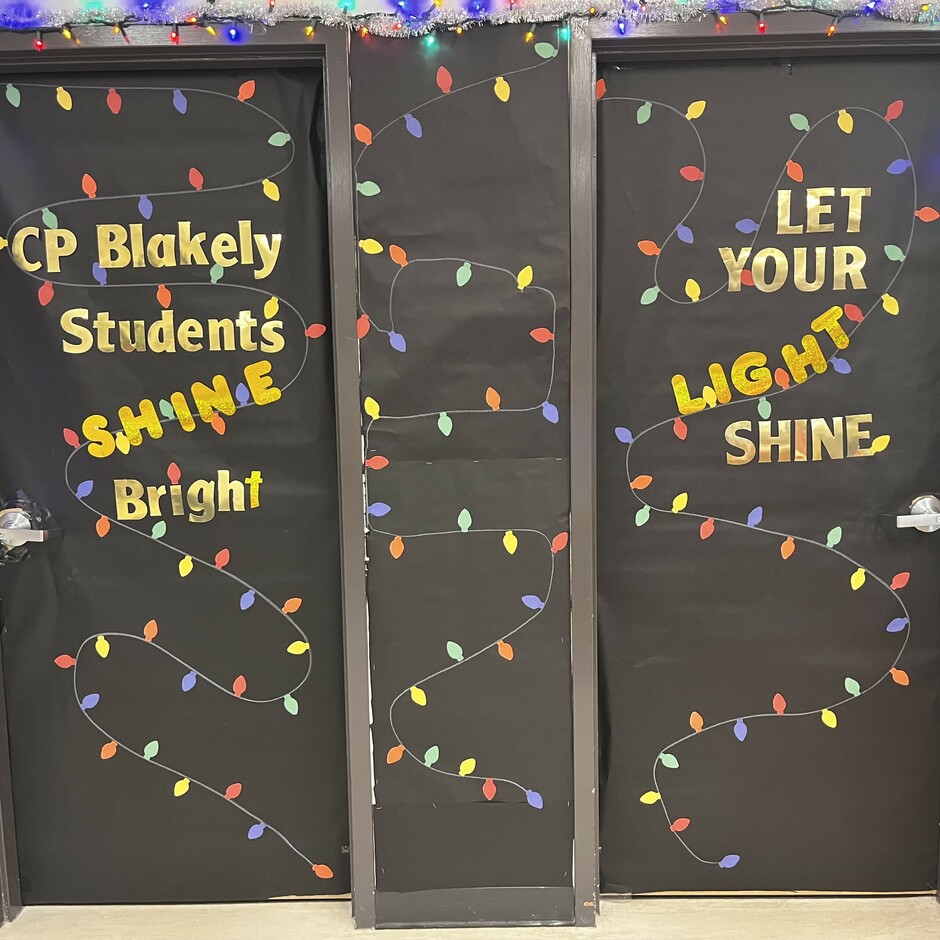 CP Blakely
Students
SHINE
Bright
LET
YOUR
LIGHT
SHINE